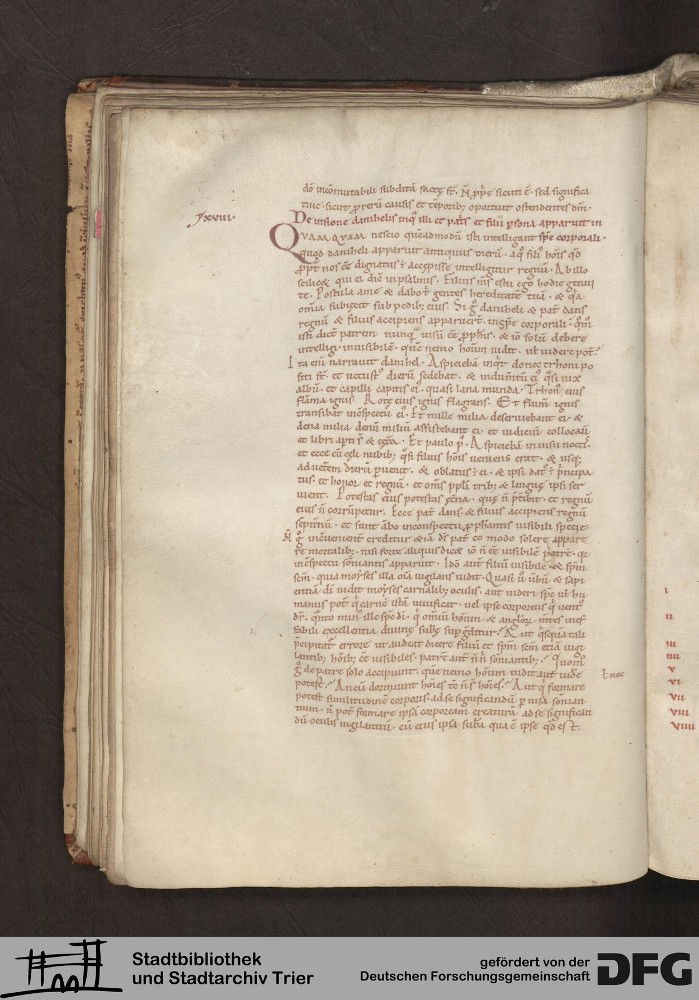 dō incōmutabili subditā sacrę st̄. N̄ ꝓprie sicuti ē. sed significa
tiue. sicut ꝓ rerū causis et tēporib; oportuit ostendentes dm̄.
xxviii.
De uisione danihelis in qͣ illi et patris et filii ꝑsona apparuit in
QVAMQVAM nescio quēadmodū isti intelligant spē corporali.
quod daniheli apparuit antiquus dierū. a quo filius hominis qd̄
ꝓpt̄ nos ēē dignatus ē accepisse intelligitur regnū. Ab illo
scilicet qui ei dicit in psalmis. Filius m̄s es tu ego hodie genui
te. Postula a me & dabo t̄ gentes hereditatē tuā. & qͥ
omīa subiecit sub pedib; eius. Si g° daniheli & pat̄ dans
regnū & filius accipiens apparuert̄. in spē corporali. qm̄
isti dict̄ patrem nunquā uisū ēē ꝓphetis. & iō solū debere
intelligi inuisibilē. quē nemo hominū uidit. ut uidere potest.
Ita enī narrauit danihel. Aspiciebā inqͥt donec throni po
siti st̄. et uetustꝰ dierū sedebat. & indum̄tū eiꝰ qͣsi nix
albū. et capilli capitis eiꝰ. quasi lana munda. Thronꝰ eius
flāma ignis Rotę eius ignis flagrans. Et flum̄ ignis
transibat in cōspectu eiꝰ. Et mille milia deseruiebant ei. &
dena milia denū miliū assistebant ei. et iudiciū collocauit
et libri aperti st̄ & cętera. Et paulo p̄. Aspiciebā in uisu nocti.
et ecce cū cęli nubib; qͣsi filius hominis ueniens erat. & usq;
ad ueterē dierū ꝑuenit. & oblatus ē ei. & ipsi datꝰ ē principa
tus. et honor et regnū. et oms̄ ppl̄i tribꝰ & linguę ipsi ser
uient. Potestas eius potestas ęterna. quę n̄ ꝑtibit. et regnū
eius n̄ corrūpetur. Ecce pat̄ dans. & filius accipiens regnū
sēpit̄nū. et sunt ambo in conspectu ꝓphetantis uisibili specie.
N̄ g° incōuenient̄ creditur etiā ds̄ pat̄ eo modo solere appare
re mortalib;. nisi forte aliquis dicet iō n̄ ēē uisibilē patrē. qͥ
in cōspectu sōniantis apparuit. Ideo aut filiū uisibilē & spm̄
scm̄. quia moyses illa omīa uigilans uidit. Quasi ū ūbū & sapi
entiā dī uidit moyses carnalib; oculis. aut uideri spc̄ ul̄ hu
manus potest qͥ carnē istā uiuificat. uel ipse corporeus qͥ uent̄
dr̄. quanto minꝰ ille spc̄ dī. qͥ omniū hominū & angelorum mentes inef
fabili excellentia diuinę substantię supgreditur? Aut qͥsquā tali
p̄cipitatur errore ut audeat dicere filiū et spm̄ scm̄ etiā uigi
lantib; hominib; ēē uisibiles. patrē aut n̄ nisi sōniantib;? Quom̄
g° de patre solo accipiunt. quē nemo hominū uidit aut uide
ł nec
potest? An cū dormiunt homines tē n̄ st̄ homines? Aut qͥ formare
potest similitudinē corporis. ad se significandū ꝑ uisa sonian
tium. n̄ potest formare ipsā corpoream creaturā. ad se significan
dū oculis uigilantiū. cū eius ipsa substantia qua ē ipse qd̄ est.
i
ii
iii
iiii
v
vi
vii
viii
viiii
Stadtbibliothek
und Stadtarchiv Trier
gefördert von der
Deutschen Forschungsgemeinschaft
DFG